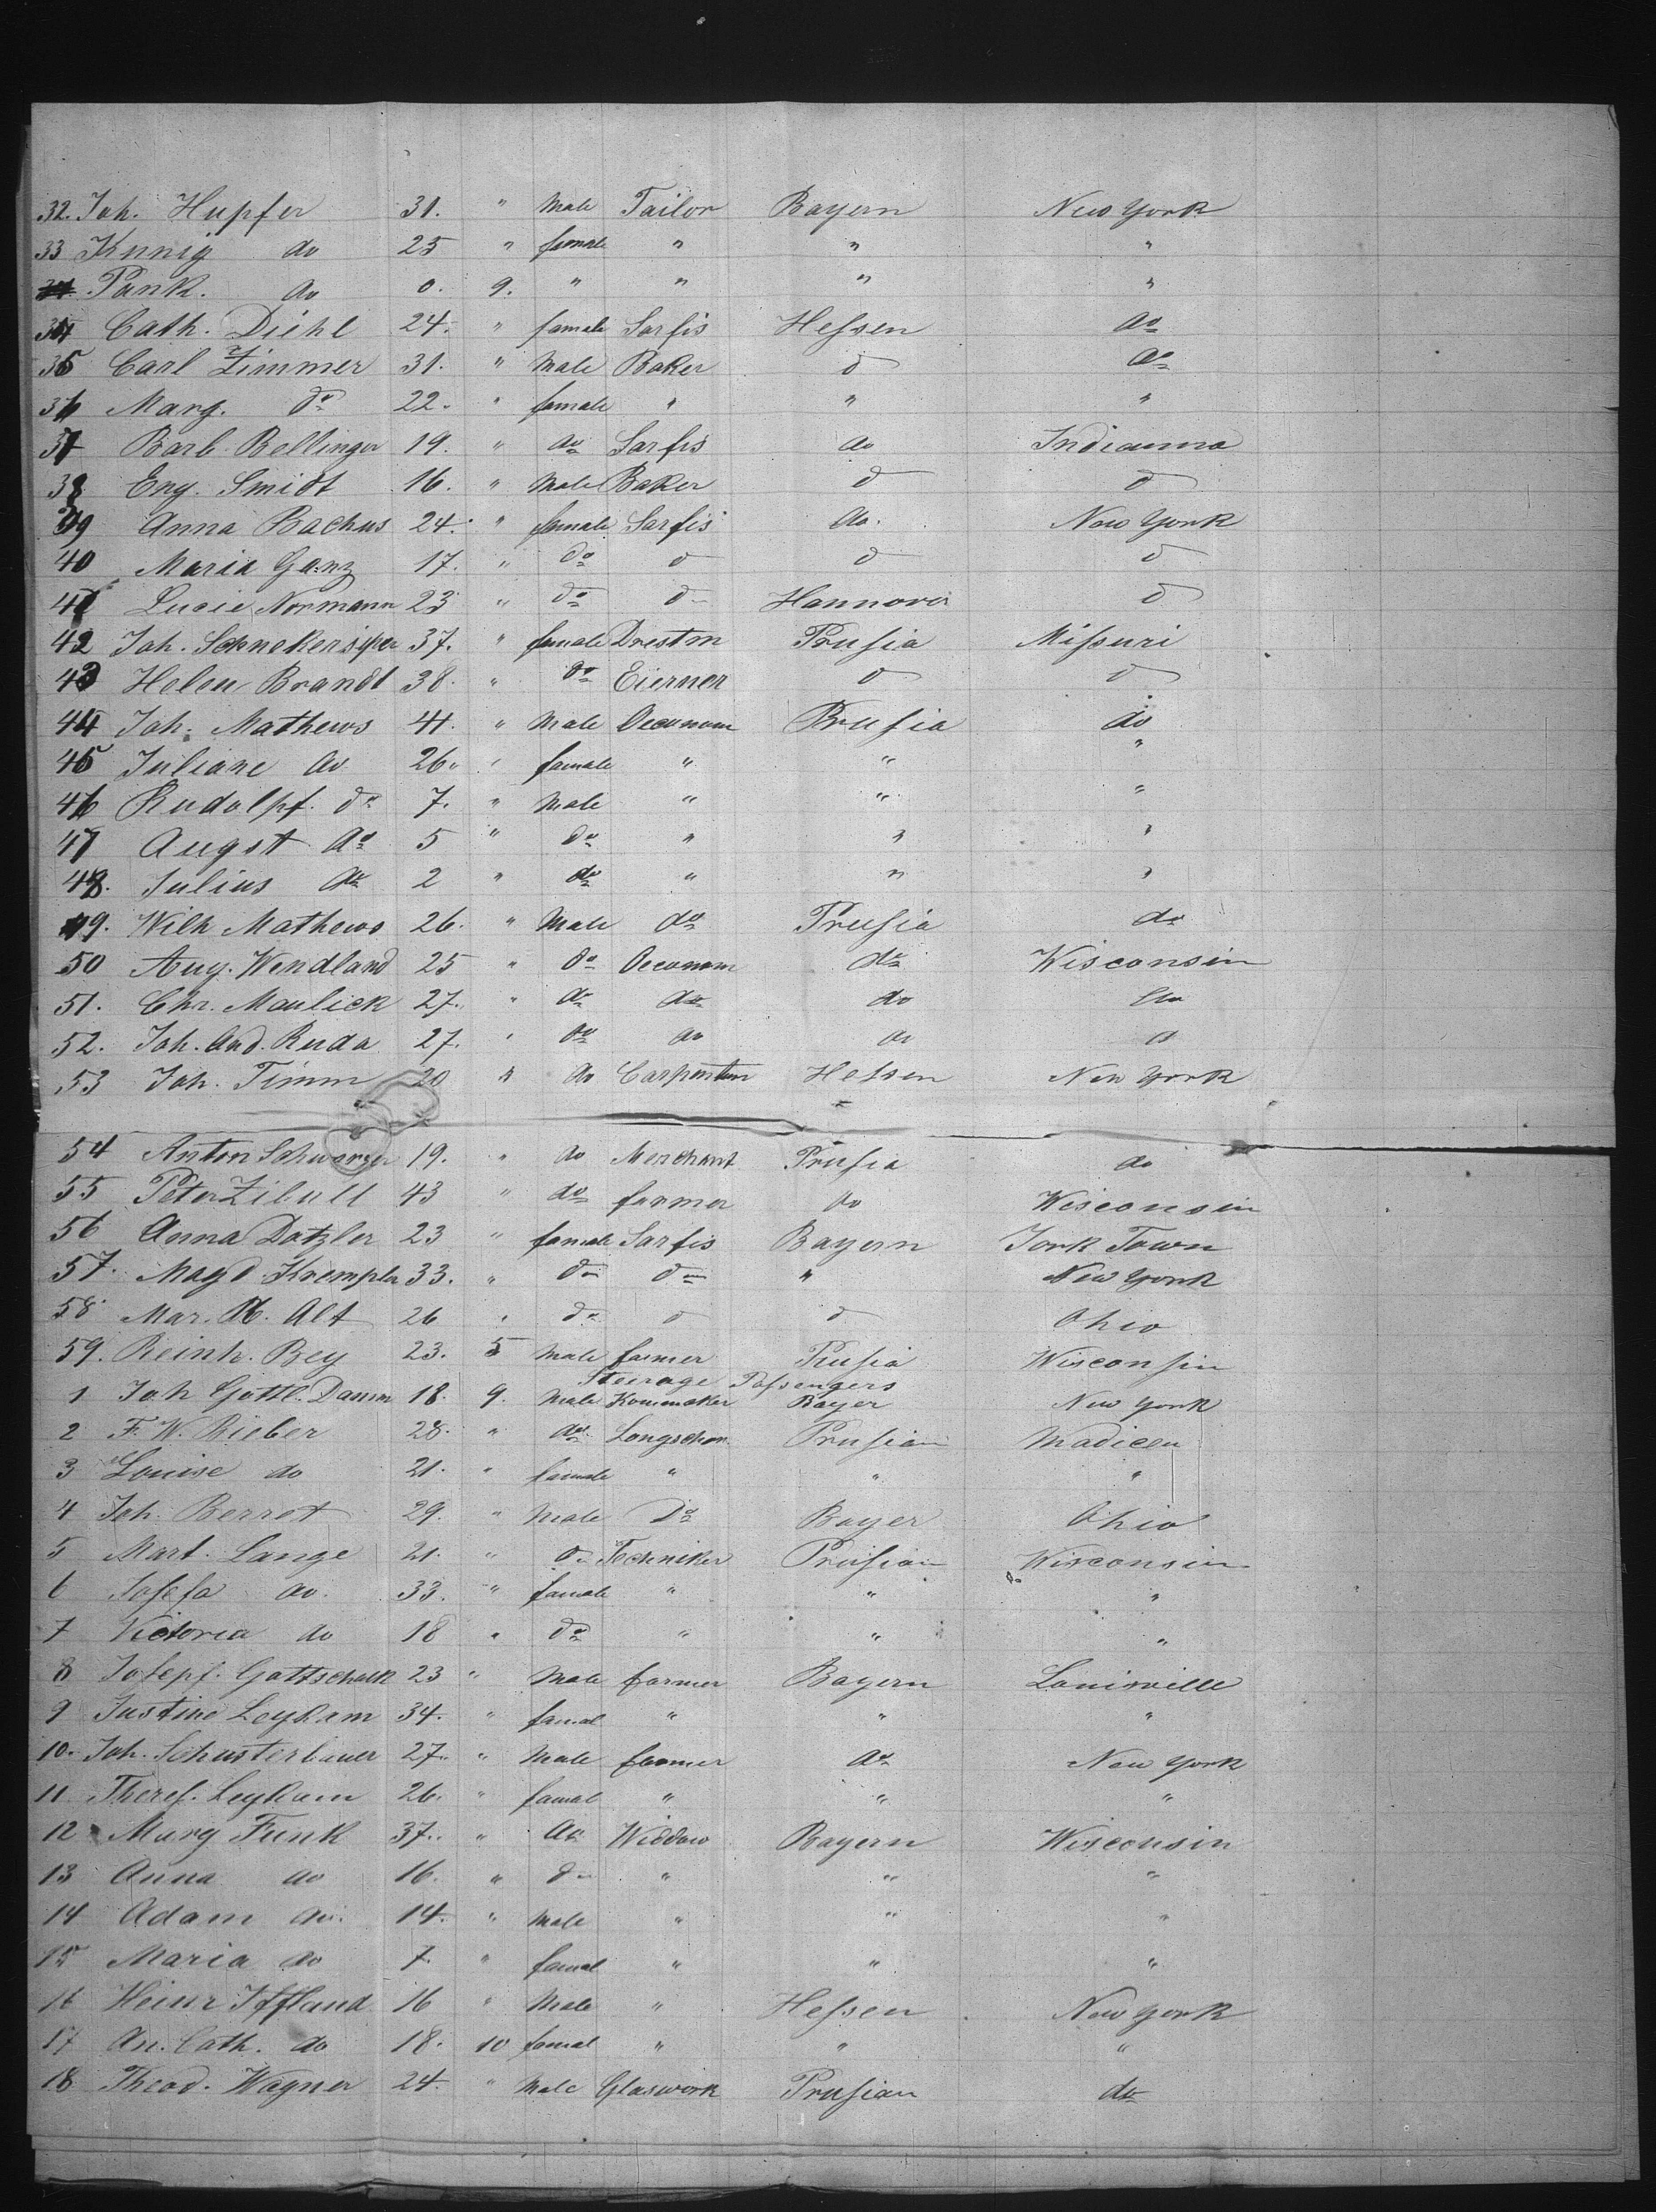 32. Joh. Hupfer 31. " Male Tailor Bayern New York
33 Kunig do 25 " female " " "
Pank. do 0. 9. " " " "
34 Cath. Diehl 24. " female Sarfis Hessen do
35 Carl Zimmer 31. " Male Baker do do
36 Marg. do 22. " female " " "
37 Barb. Bellinger 19. " do Sarfis do Indianna
38 Eng. Smidt 16. " Male Baker do do
39 Anna Bachus 24. " female Sarfis do. New York
40 Maria Ganz 17. " do do do do
41 Lucie Normann 23 " do do Hannover do
42 Joh. 37. " female Prusia Missuri
43 Helen Brandt 38. " do Eierner do do
44 Joh. Mathews 41. " Male Oeconom Prusia do
45 Juliane do 26. " female " " "
46 Rudolpf. do 7. " Male " " "
47 Augst do 5 " do " " "
48. Julius do 2 " do " " "
49. Wilh Mathews 26. " Male do Prusia do
50 Aug. Wendland 25 " do Oeconom do Wisconsin
51. Chr. Maulick 27. " do do do do
52. Joh. And. Ruda 27. " do do do do
53 Joh. Timm 20 " do Carpenter Hessen New York
54 Anton Schwarzer 19. " do Merchant Prusia do
55 Peter Zibull 43 " do farmer do Wisconsin
56 Anna Dotzler 23 " female Sarfis Bayern York Town
57. Magd Krempler 33. " do do " New York
58 Mar. Alt 26 " do do do Ohio
59. Reinh. Bey 23. 5 Male farmer Prusia Wisconsin
Steerage Passengers
1 Joh Gottl. Damm 18. 9. Male Bayer New York
2 F. W. Rieber 28. " do Prusian
3 Louise do 21. " female " " "
4 Joh. Berret 29. " Male Do Bayer Ohio
5 Mart. Lange 21. " do Techniker Prusian Wisconsin
6 Josefa do. 33. " female " " "
7 Victoria do 18 " do " " "
8 Josepf. Gottschalk 23 " Male farmer Bayern Louisville
9 Justine Leykam 34. " famal " " "
10. Joh. Schusterbauer 27. " Male farmer do New York
11 Theres. Leykam 26. " famal " " "
12 Marg Funk 37. " do Widdow Bayern Wisconsin
13 Anna do 16. " do " " "
14 Adam do. 14. " Male " " "
15 Maria do 7. " famal " " "
16 Heinr Iffland 16 " Male " Hessen New York
17 An. Cath. do 18. 10 famal " " "
18 Theod. Wagner 24. " Male Glaswork Prusian do